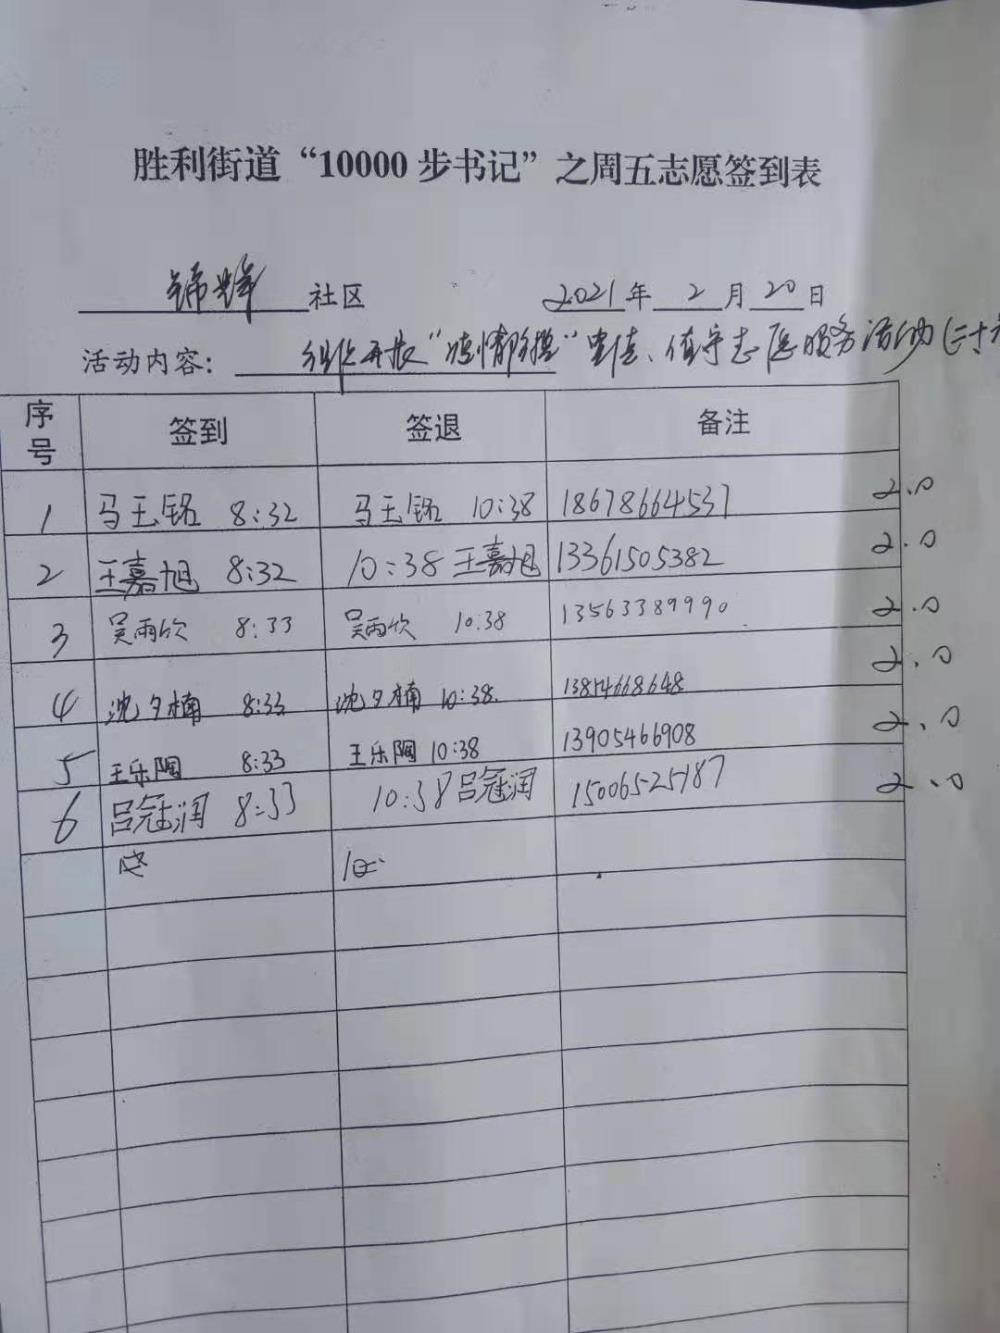 胜利街道“10000步书记”之周五志愿签到表
锦辉社区 2021年2月20日
活动内容：组织开展“疫情防控”宣传、值守志愿服务活动(二十
序号 签到 签退 备注
1 马玉铭 8:32 马玉铭 10:38 18678664537 2.0
2 王嘉旭 8:32 10:38 王嘉旭 13361505382 2.0
3 吴雨欣 8:33 吴雨欣 10:38 13563389990 2.0
4 沈夕楠 8:33 沈夕楠 10:38. 13854668648 2.0
5 王乐陶 8:33 王乐陶 10:38 13905466908 2.0
6 吕冠润 8:33 10:38 吕冠润 15006525187 2.0